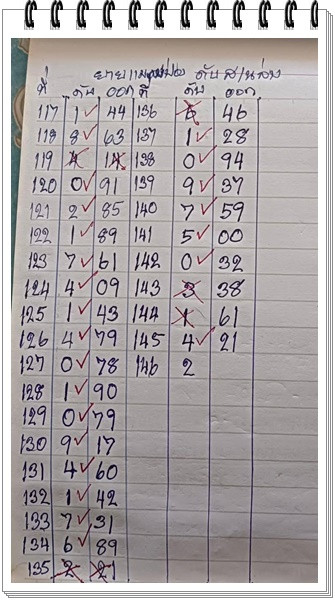 ที่ ดับ ออก ที่ ดับ ออก
117 1 ✓ 44 136 5 46
118 8 ✓ 63 137 1 ✓ 28
119 4 14 138 0 ✓ 94
120 0 ✓ 91 139 9 ✓ 37
121 2 ✓ 85 140 7 ✓ 59
122 1 ✓ 89 141 5 ✓ 00
123 7 ✓ 61 142 0 ✓ 32
124 4 ✓ 09 143 3 38
125 1 ✓ 43 144 1 61
126 4 ✓ 79 145 4 ✓ 21
127 0 ✓ 78 146 2
128 1 ✓ 90
129 0 ✓ 79
130 9 ✓ 17
131 4 ✓ 60
132 1 ✓ 42
133 7 ✓ 31
134 6 ✓ 89
135 2 21